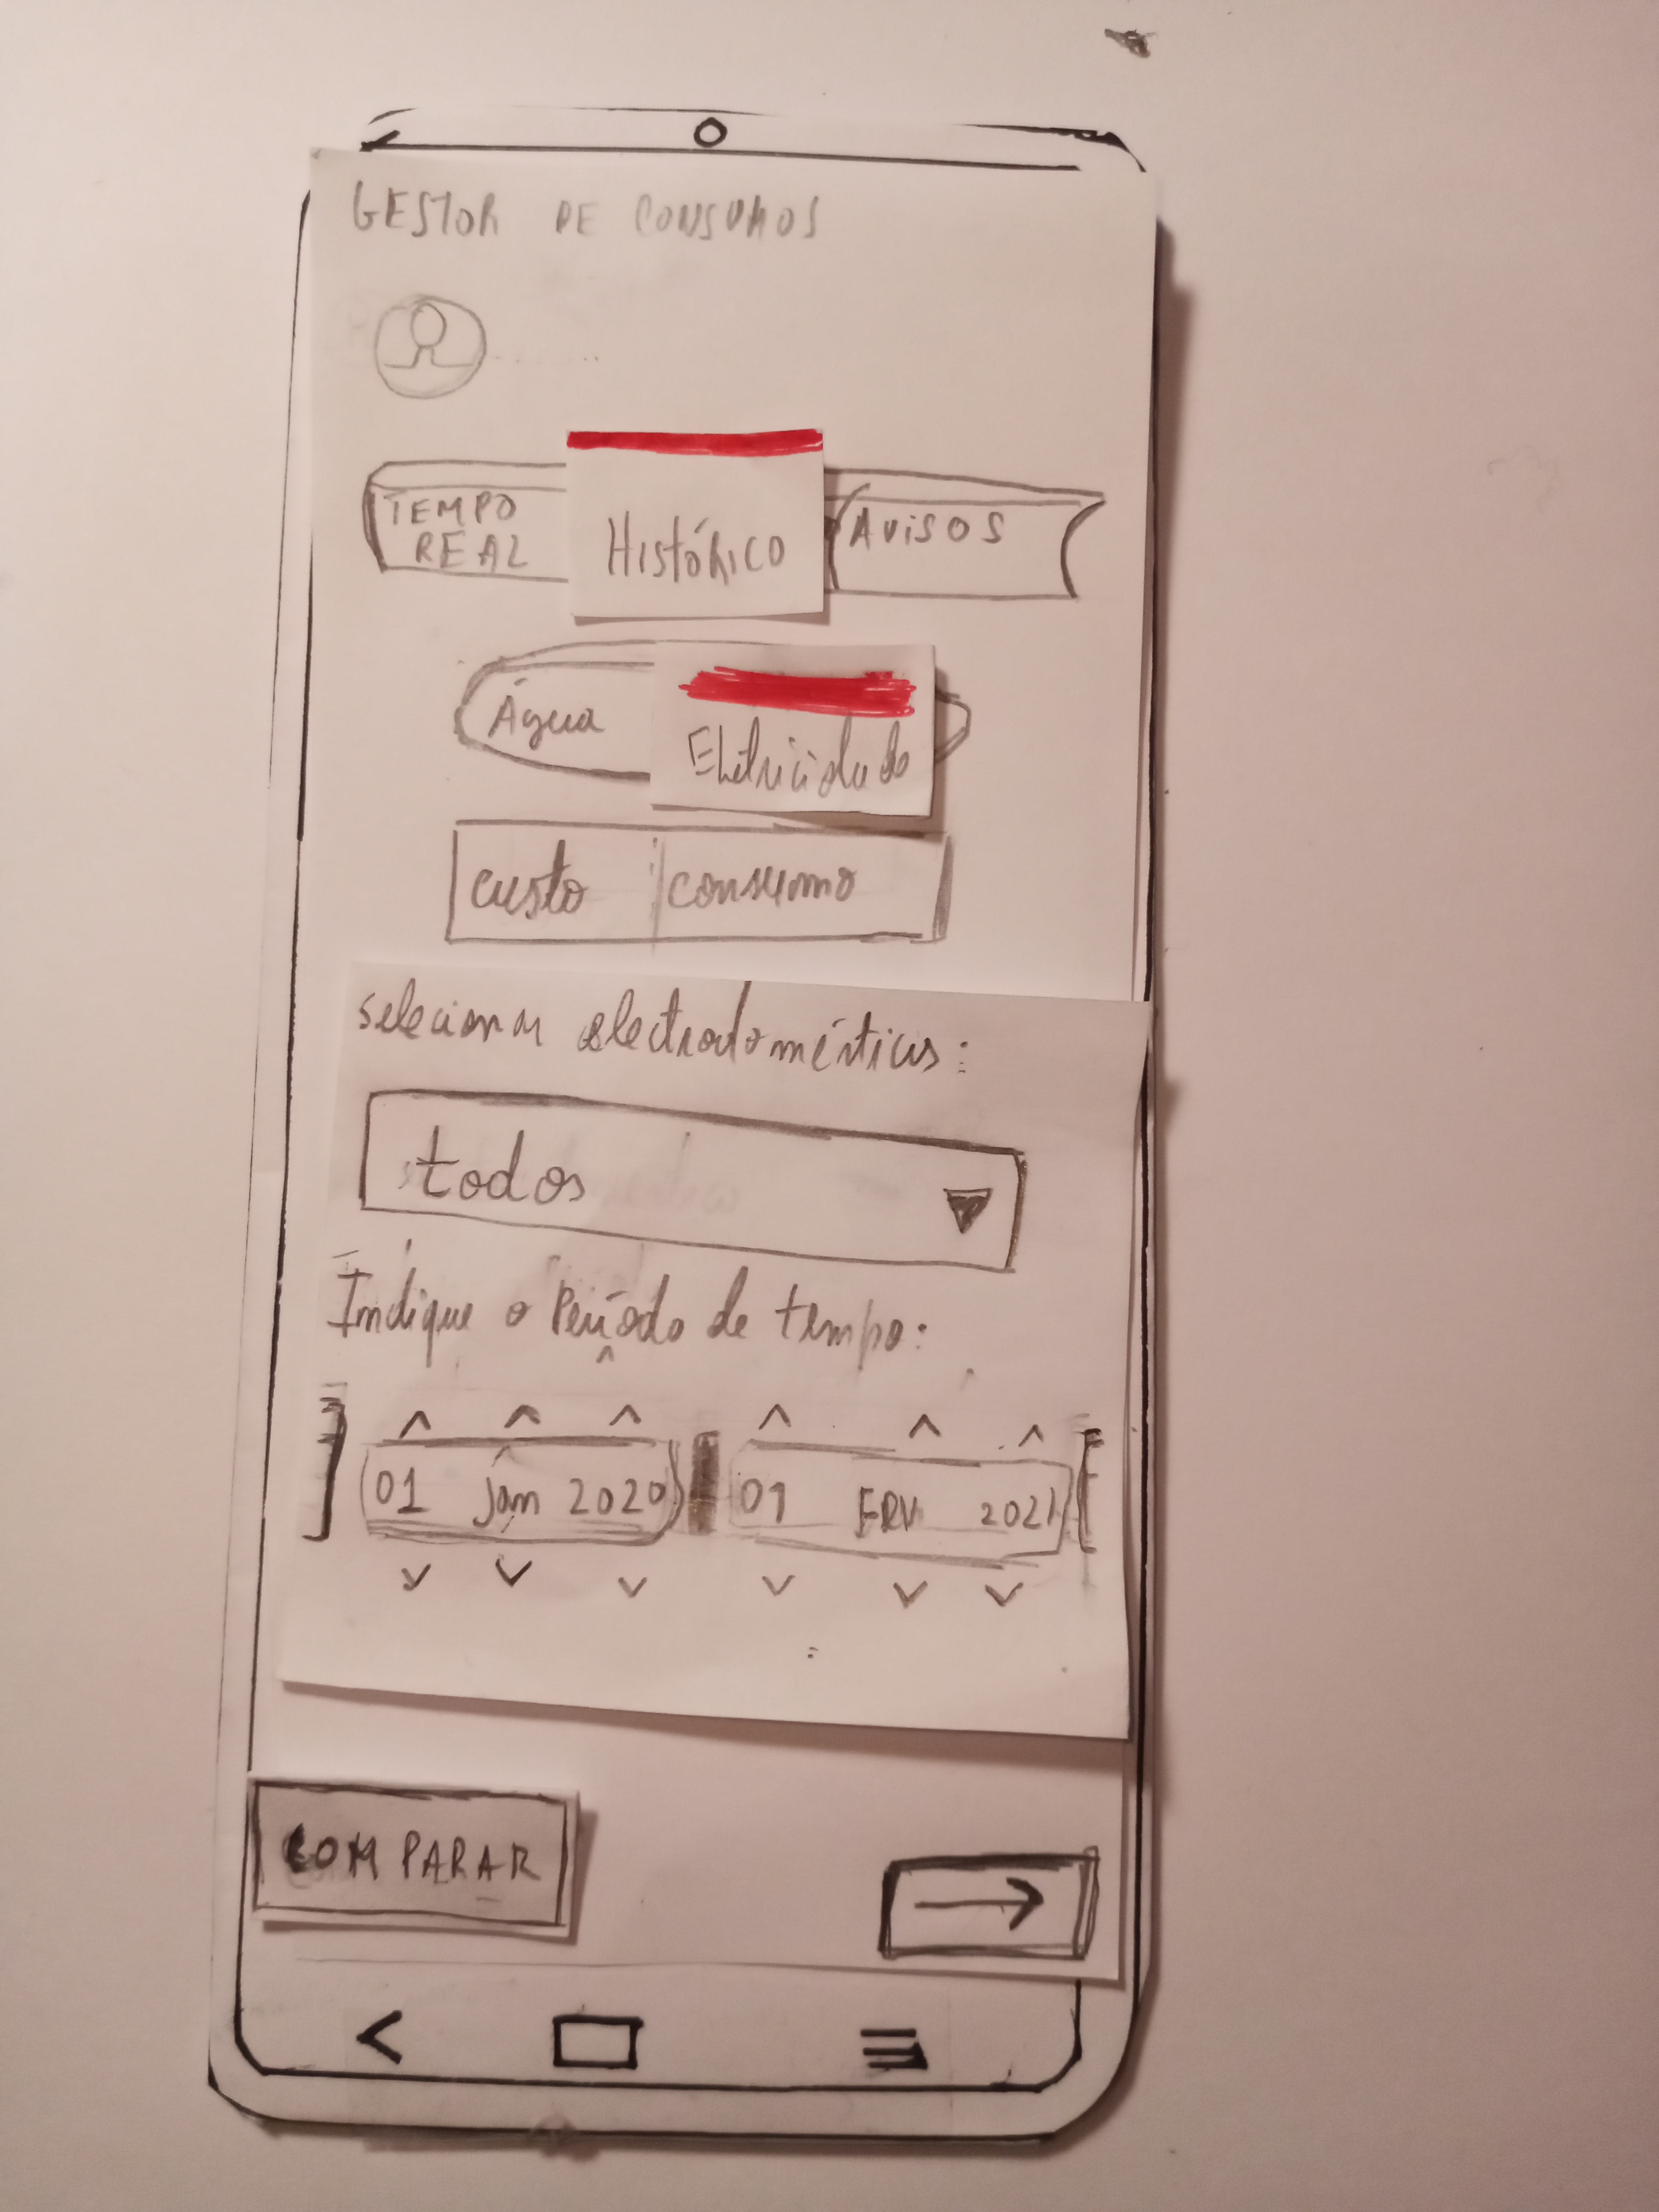 GESTOR DE CONSUMOS
TEMPO REAL
Histórico
AVISOS
Água
Eletricidade
custo
consumo
selecionar electrodomésticos:
todos
Indique o Período de tempo:
01 Jan 2020
01 FEV 2021
COMPARAR